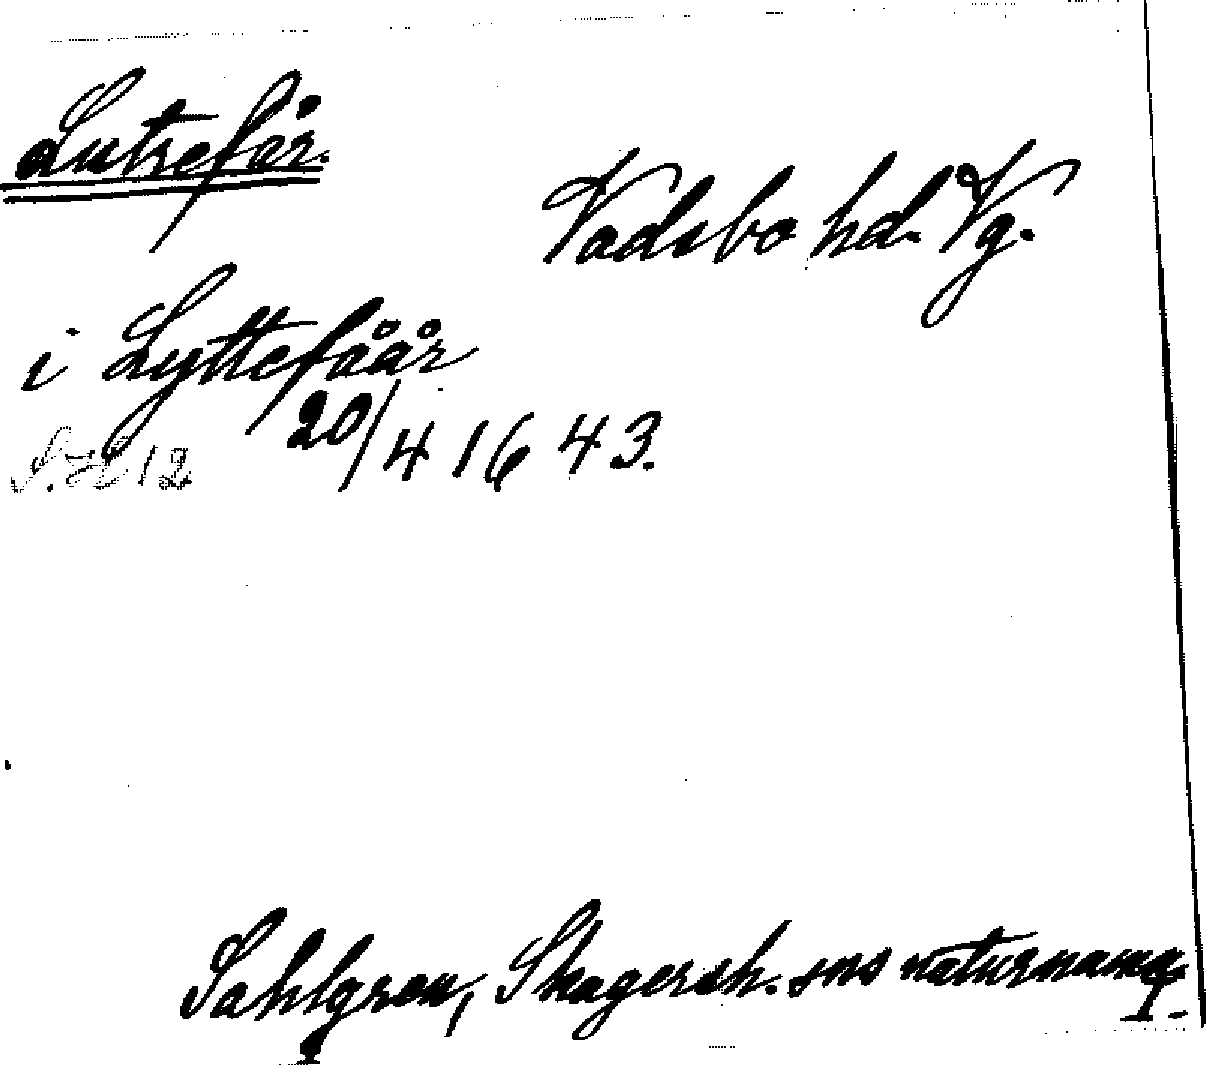 Lutrefår.
Vadsbo hd. Vg.
i Lyttefåår
20/4 1643.
S. H 12
Sahlgren, Skagersh. sns naturnamn